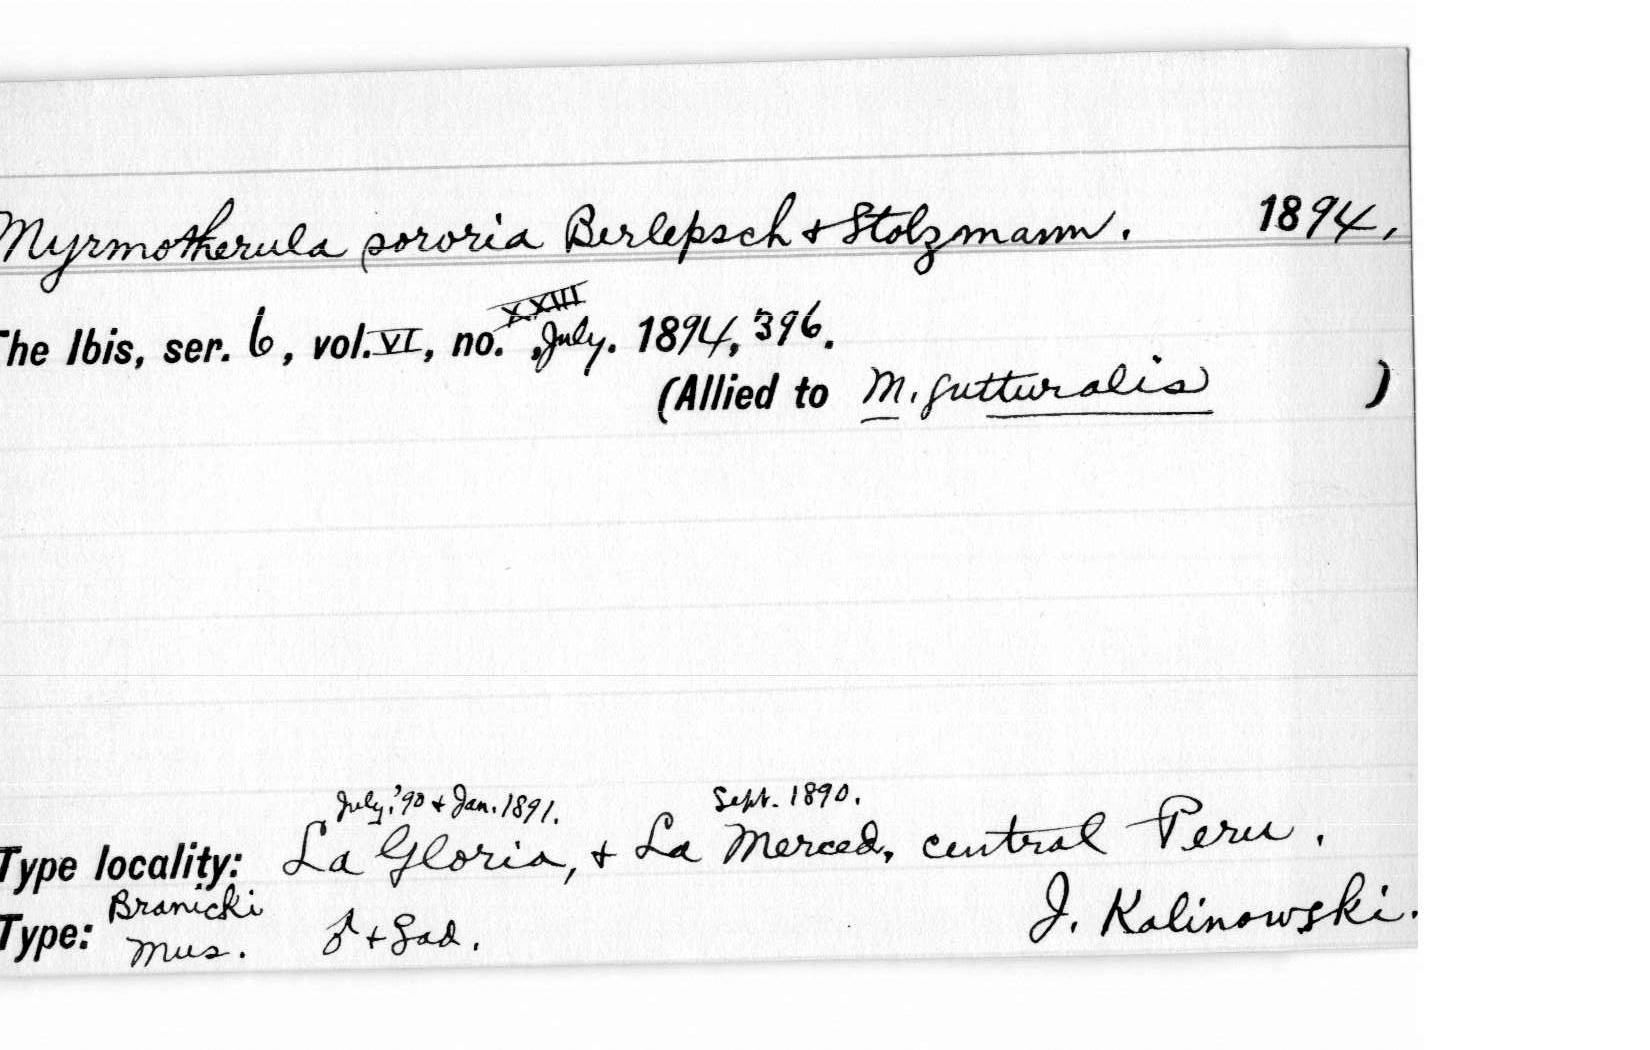 Myrmotherula sororia Berlepsch & Stolzmann. 1894,
XXIII
The Ibis, ser. 6, vol. VI, no. , July. 1894, 396.
(Allied to M. gutturalis )
July, '90 & Jan. 1891. Sept. 1890.
Type locality: La Gloria, & La Merced, central Peru.
Branicki J. Kalinowski.
Type: Mus. ♂ + ad.